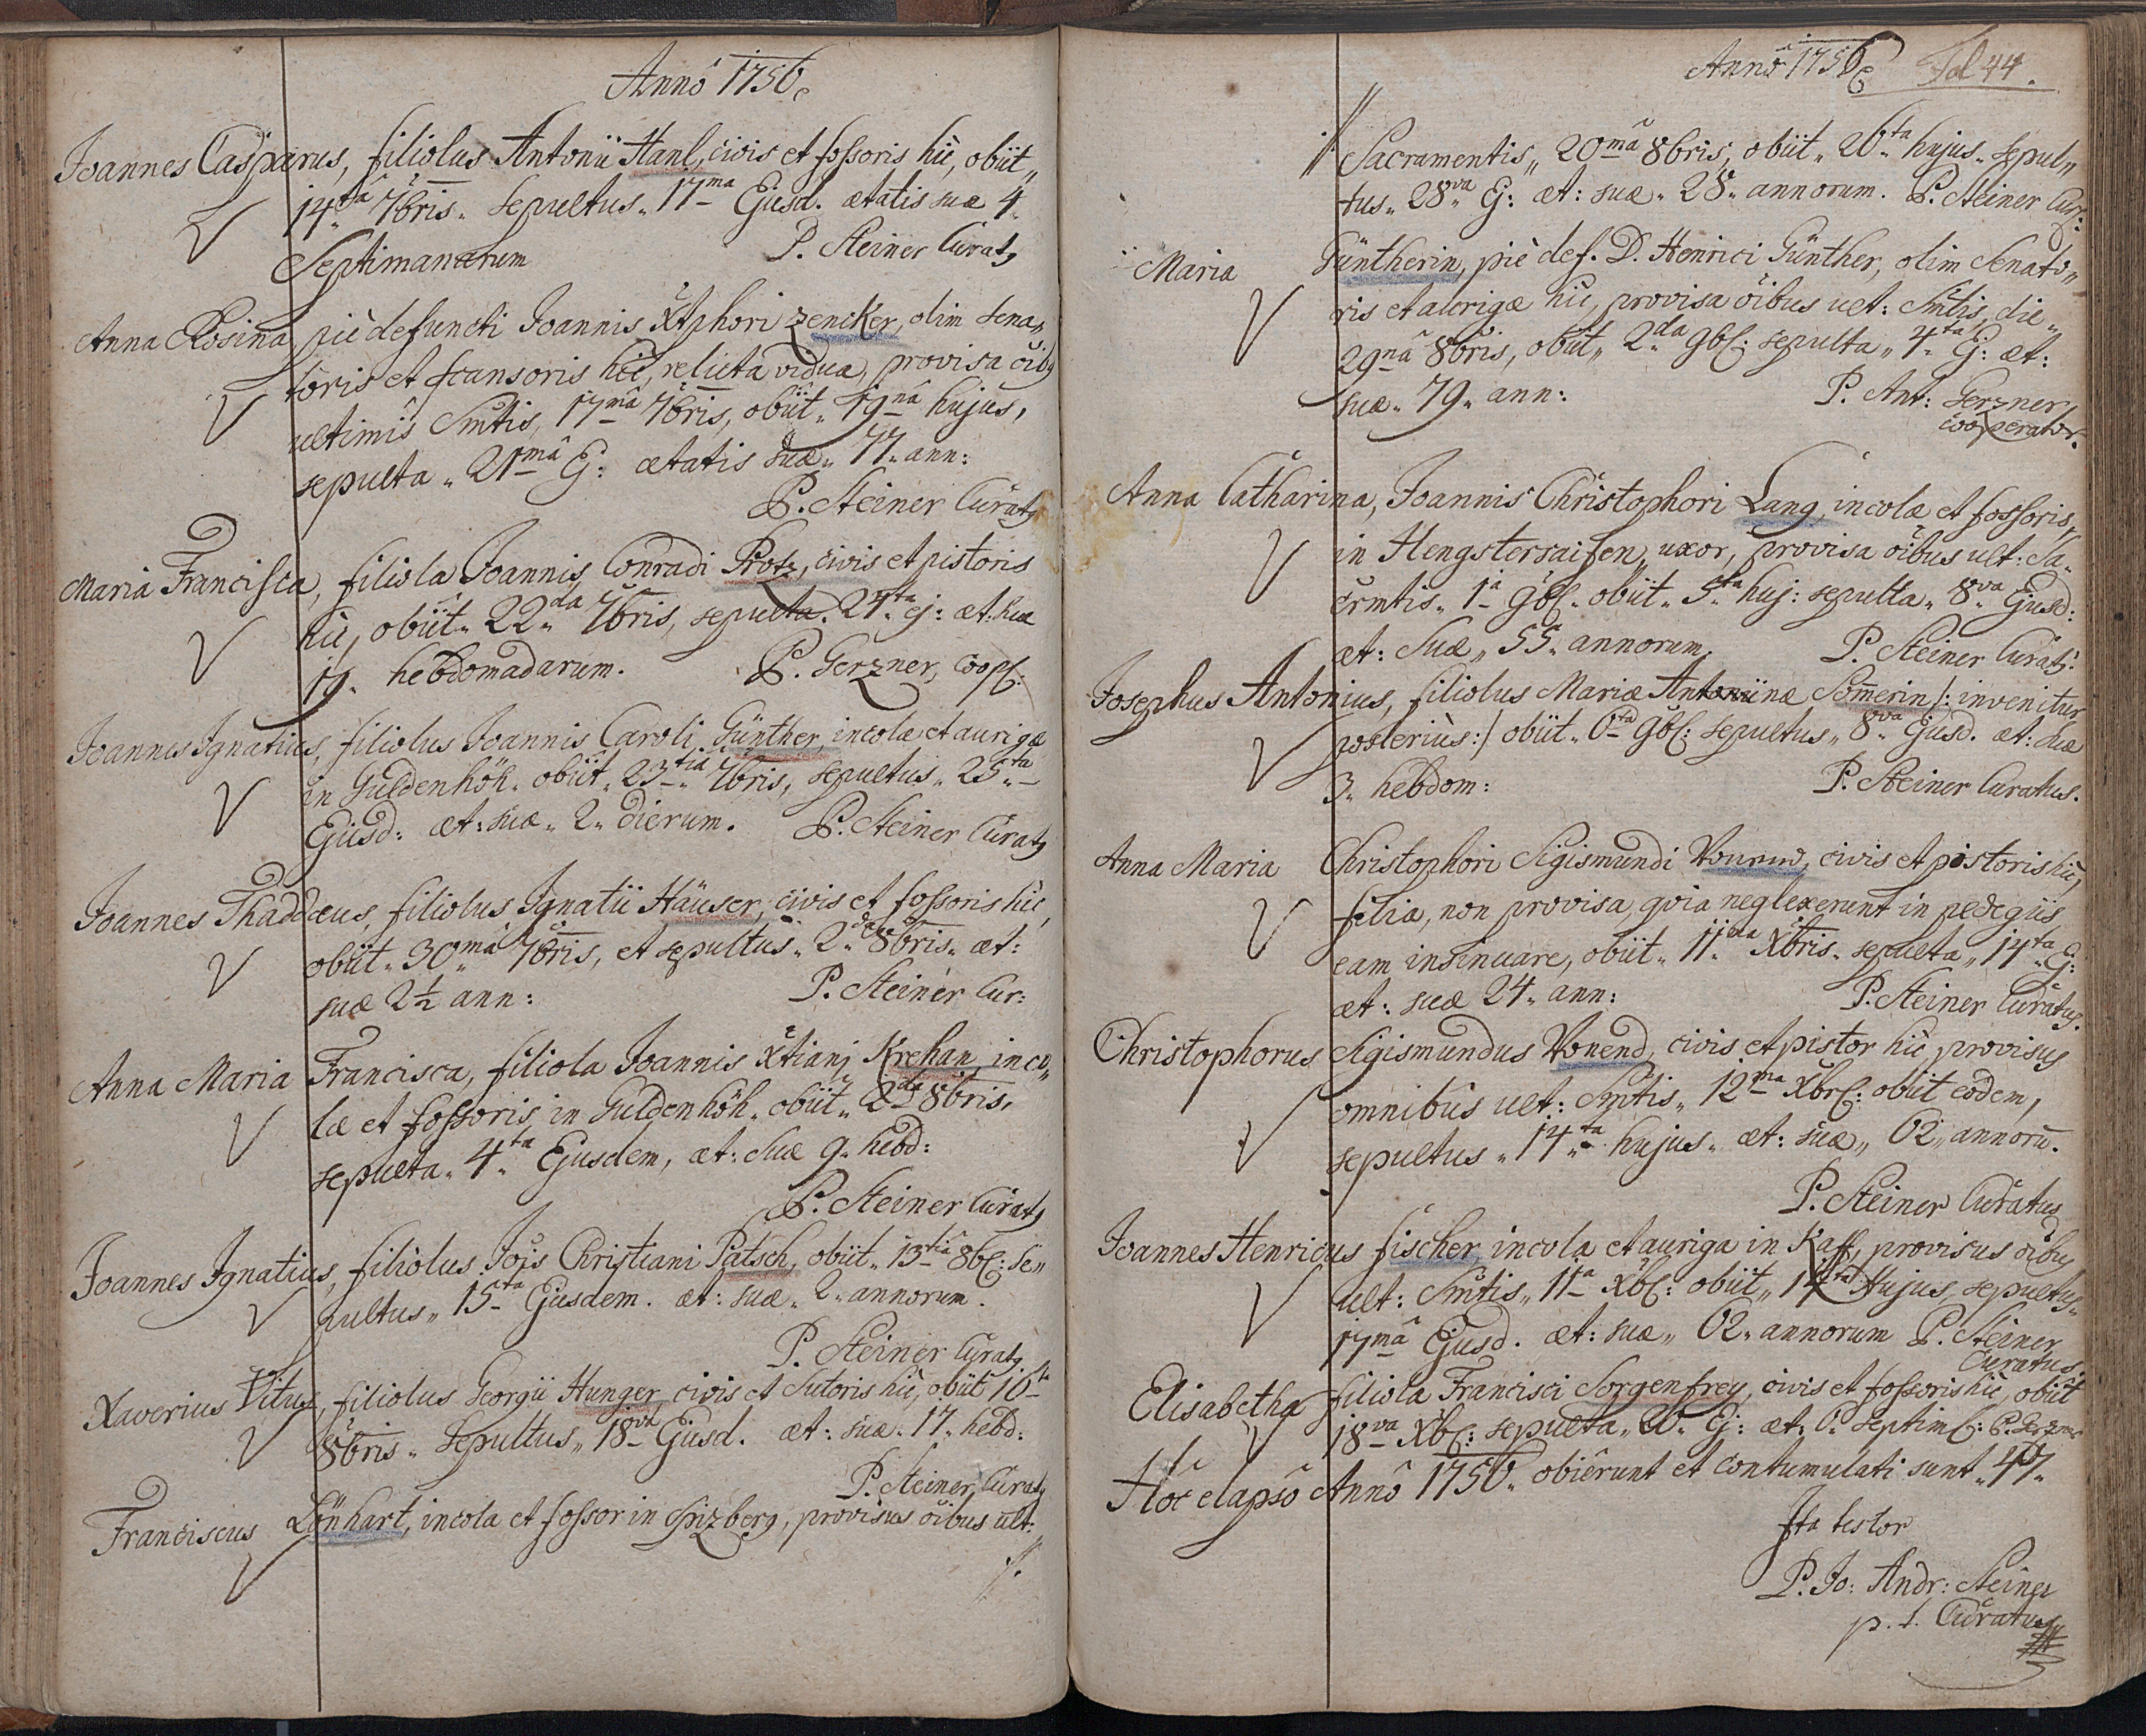 Annô 1756
Joannes Casparus, filiolus Antonii Hanl, civis et fossoris hic, obiit„
14ta 7bris„ Sepultus„ 17ma Ejusd. ætatis suæ 4„
Septimanarum P. Steiner Curatq
Anna Rosina piè defuncti Joannis Xtphori Zencker, olim Sena„
toris et scansoris hic, relicta vidua, provisa oibq
ultimis Smtis, 17mâ 7bris, obiit„ 19nâ hujus,
sepulta„ 21mâ Ej: ætatis suæ„ 77„ ann:
P. Steiner Curatq
Maria Francisca, filiola Joannis Conradi Protz, civis et pistoris
hic, obiit„ 22da 7bris, sepulta„ 24ta ej: æt: suæ
19. hebdomadarum. P. Gerzner, Coop:
Joannes Ignatius, filiolus Joannis Caroli Günther, incolæ et aurigæ
in Güldenhöh„ obiit„ 23tia 7bris, sepultus„ 25ta
Ejusd: æt: suæ„ 2„ dierum. P. Steiner Curatq
Joannes Thaddæus, filiolus Ignatii Häuser, civis et fossoris hic,
obiit„ 30mâ 7bris, et sepultus„ 2da 8bris„ æt:
suæ 2½ ann: P. Steiner Cur:
Anna Maria Francisca, filiola Joannis Xtiani Krehan, inco„
læ et fossoris in Güldenhöh„ obiit„ 2da 8bris,
sepulta„ 4ta Ejusdem, æt: suæ 9„ hebd:
P. Steiner Curatq
Joannes Ignatius, filiolus Jois Christiani Patsch, obiit„ 13tiâ 8b: Se„
pultus„ 15ta Ejusdem. æt: suæ„ 2„ annorum.
P. Steiner Curatq
Xaverius Vitus, filiolus Georgii Hunger, civis et Sutoris hic, obiit 16ta
8bris„ Sepultus„ 18va Ejusd. æt: suæ„ 17„ hebd:
P. Steiner Curatq
Franciscus Lönhart, incola et fossor in Spizberg, provisus oibus ult:
Annô 1756 Fol 44.
Sacramentis„ 20mâ 8bris, obiit„ 26ta hujus„ sepul„
tus„ 28va Ej: æt: suæ„ 28„ annorum. P. Steiner Cur:
Maria Güntherin, piè def. D. Henrici Günther, olim Senato„
ris et aurigæ hic, provisa oibus ult: Smtis, die„
29nâ 8bris, obiit„ 2da 9b: sepulta„ 4ta Ej: æt:
suæ„ 79„ ann: P. Ant: Gerzner
Cooperator.
Anna Catharina, Joannis Christophori Lang, incolæ et fossoris,
in Hengstersaifen, uxor, provisa oibus ult: Sa„
crmtis„ 1a 9b„ obiit„ 5ta huj: sepulta„ 8va Ejusd:
æt: Suæ„ 55„ annorum. P. Steiner Curatq.
Josephus Antonius, filiolus Mariæ Antoniinæ Somerin /: invenitur
posterius:/ obiit„ 6ta 9b: sepultus„ 8va Ejusd. æt: suæ
3„ hebdom: P. Steiner Curatus.
Anna Maria Christophori Sigismundi civis et pistoris hic,
filia, non provisa, qvia neglexerunt in pedegiis
eam insinuare, obiit„ 11ma Xbris„ sepulta„ 14ta Ej:
æt: suæ 24„ ann: P. Steiner Curatus.
Christophorus Sigismundus Vonend, civis et pistor hic provisus
omnibus ult: Smtis„ 12ma Xbr: obiit eodem,
sepultus„ 14ta hujus„ æt: suæ„ 62„ annorū.
P. Steiner Curatus
Joannes Henricus fischer, incola et auriga in Kaff, provisus oibus
ult: Smtis„ 11a Xb: obiit„ 14ta Hujus, sepultus„
17mâ Ejusd. æt: suæ„ 62„ annorum P. Steiner
Curatus
Elisabetha filiola Francisci Sorgenfrey, civis et fossoris hic, obiit
18va Xb: sepulta„ 20„ Ej: æt: 6„ septim: P. Gerzner
Hôc elapsô Annô 1756„ obiêrunt et contumulati sunt„ 47„
Ita testor
P. Jo: Andr: Steiner
p. t. Curatus